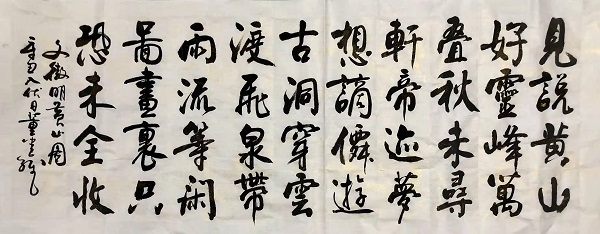 見說黄山
好靈峰萬
疊秋未尋
軒帝迹夢
想謫僊遊
古洞穿雲
渡飛泉帶
雨流等閑
圖畫裏只
恐未全收
文徵明黄山圖
入伏日董